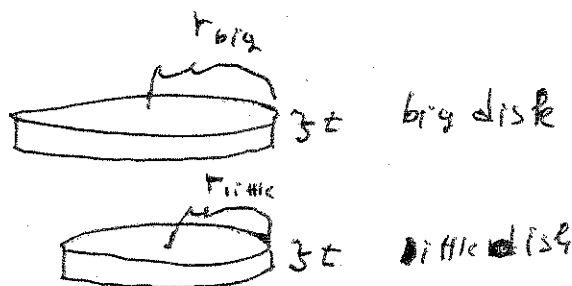 r big
t big disk
r little
t little disk